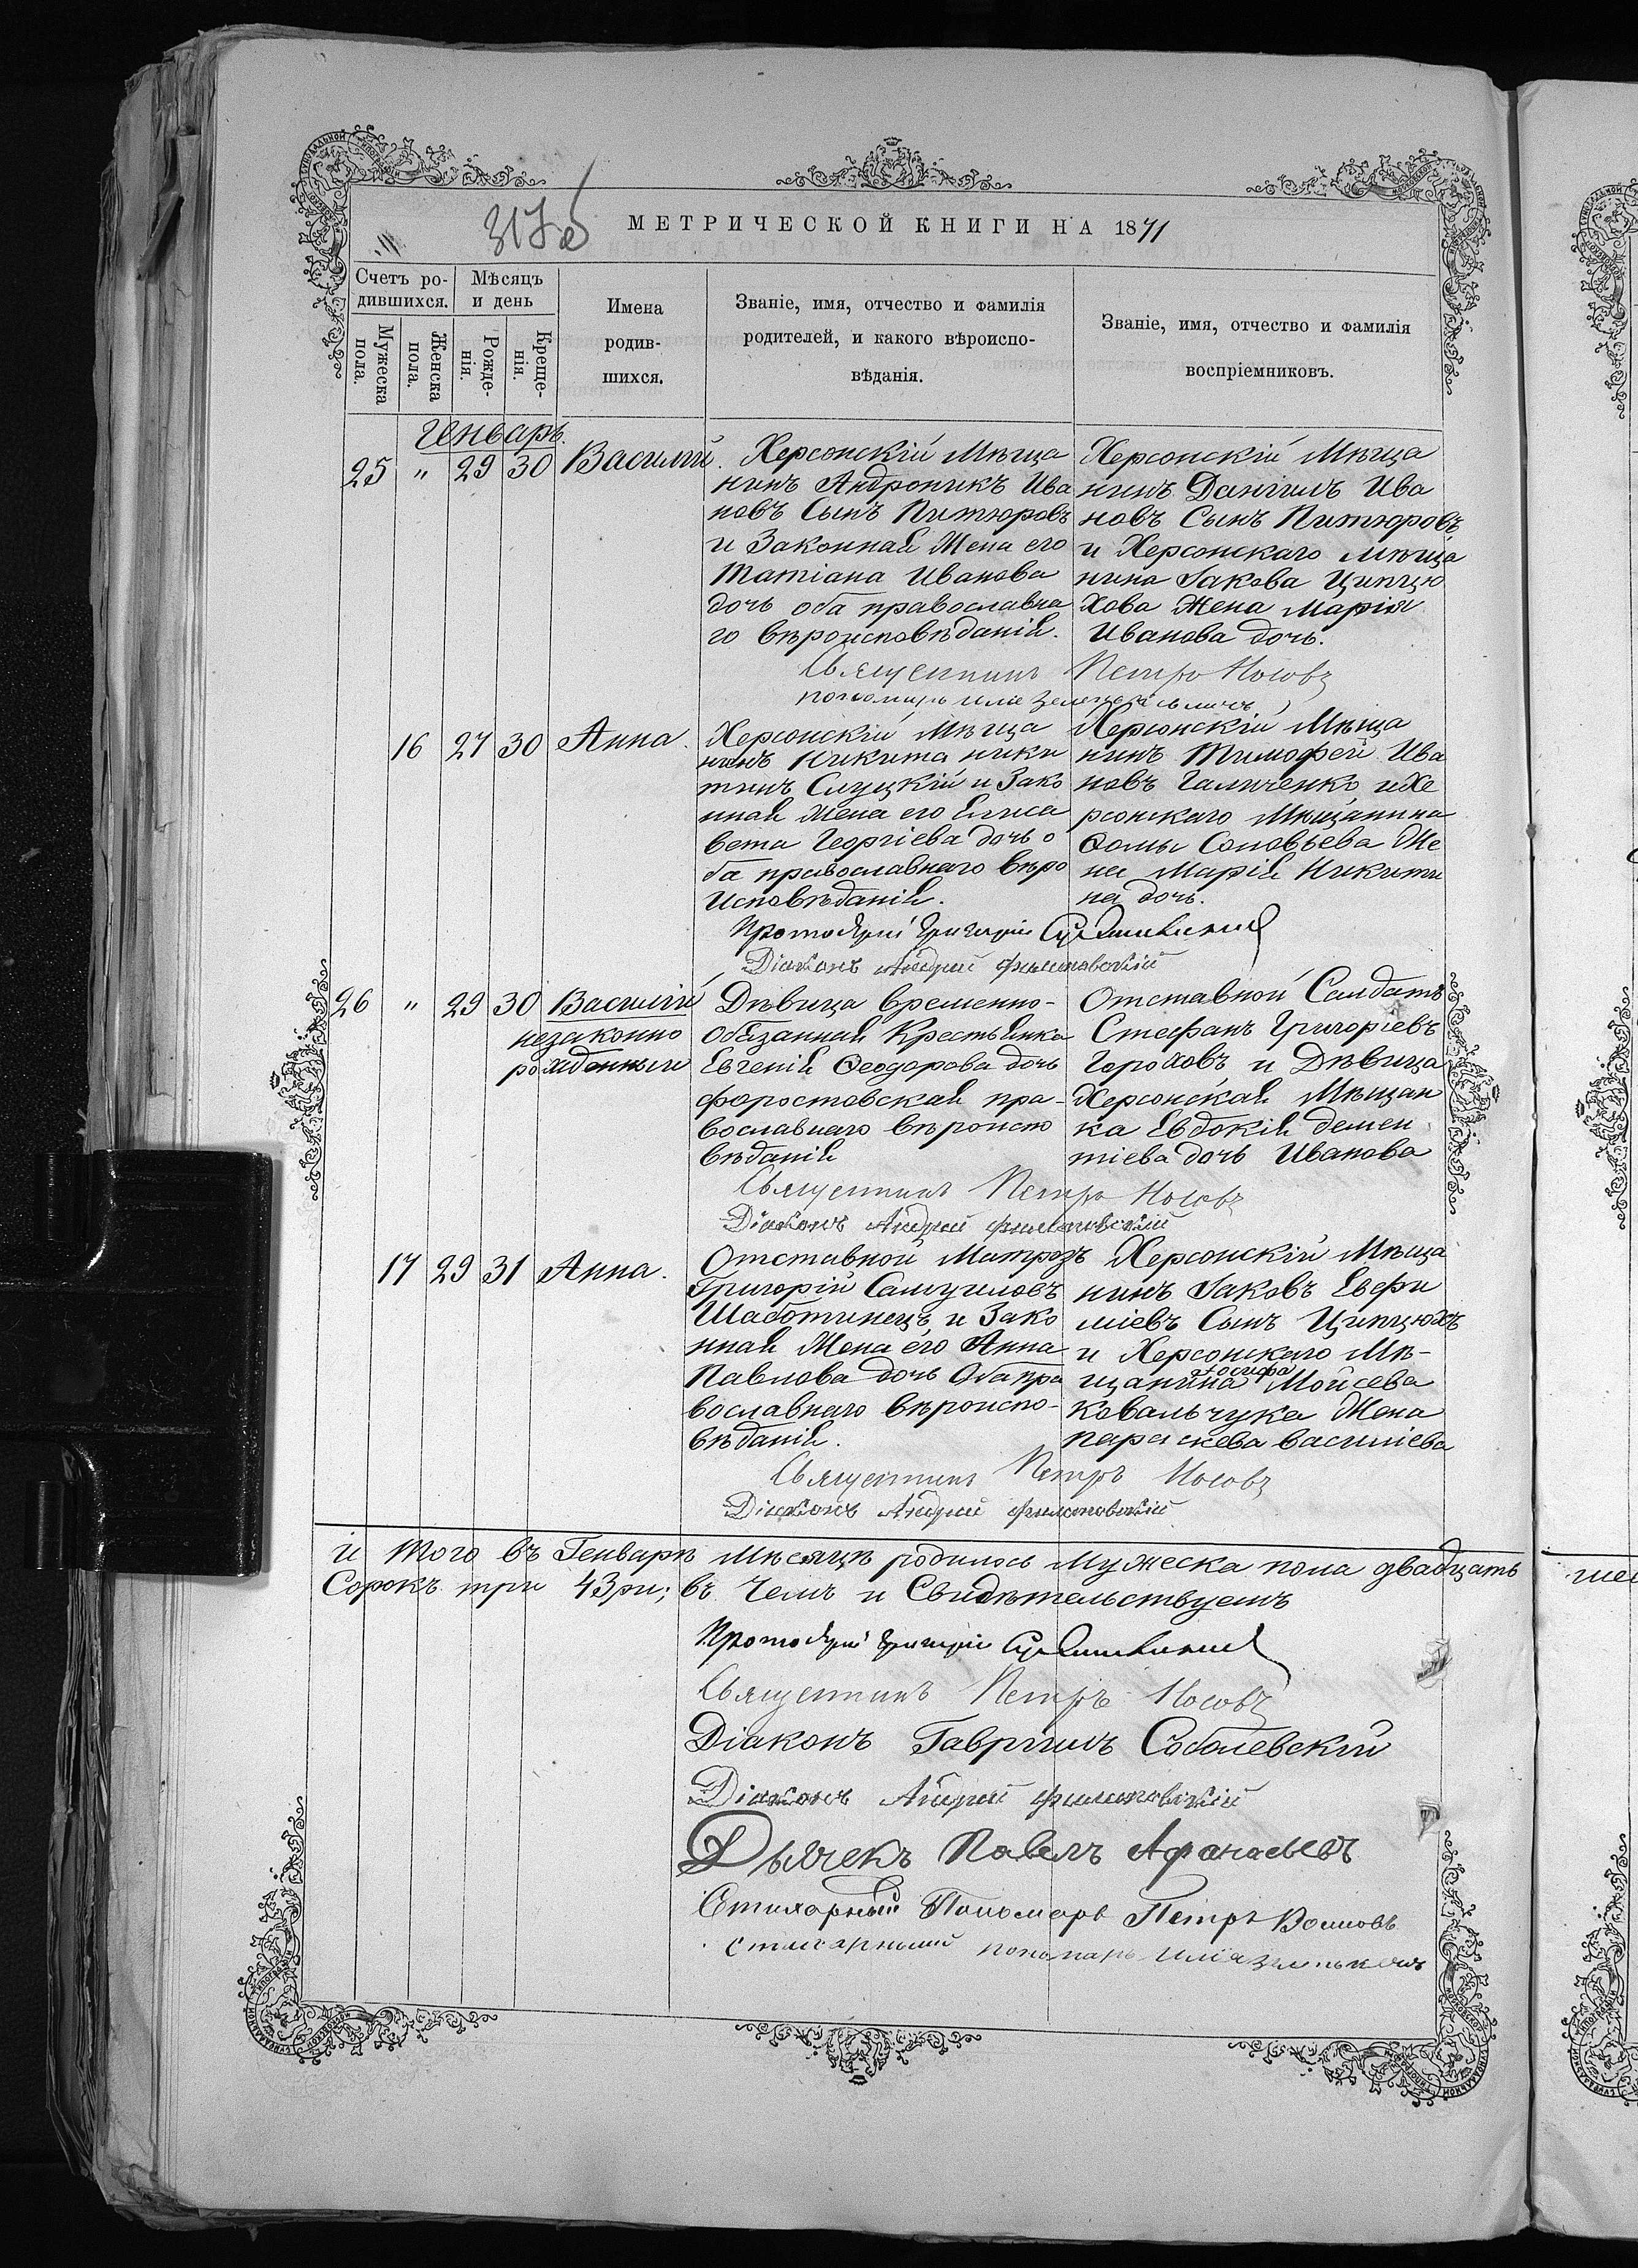 317об
МЕТРИЧЕСКОЙ КНИГИ НА 1871
Счетъ ро-
дившихся.
Мѣсяцъ
и день
Мужеска
пола.
Женска
пола.
Рожде-
нія.
Креще-
нія.
Имена
родив-
шихся.
Званіе, имя, отчество и фамилія
родителей, и какого вѣроиспо-
вѣданія.
Званіе, имя, отчество и фамилія
воспріемниковъ.
Генварь.
25 " 29 30 Василій.
Херсонскій Мѣща
нинъ Андроникъ Ива
новъ Сынъ Питюровъ
и Законная Жена его
Татіана Иванова
дочь оба православна
го вѣроисповѣданія.
Херсонскій Мѣща
нинъ Даніилъ Ива
новъ Сынъ Питюровъ
и Херсонскаго мѣща
нина Іакова Ципцю
хова Жена Марія
Иванова дочь.
Священникъ Петръ Носовъ
пономарь Илія
16 27 30 Анна.
Херсонскій Мѣща
нинъ Никита Ники
тинъ Слуцкій и Зако
нная Жена его Елиса
вета Георгіева дочь о
ба православнаго вѣро
исповѣданія.
Херсонскій Мѣща
нинъ Тимофей Ива
новъ Галиченко и Хе
рсонскаго Мѣщанина
Ѳомы Соловьева Же
на Марія Никити
на дочь.
Протоіерей Григорій
Діаконъ Андрей Филиповскій
26 " 29 30 Василій
незаконно
рожденный
Дѣвица временно-
обязанная Крестьянка
Евгенія Ѳеодорова дочь
Форостовская пра-
вославнаго вѣроиспо
вѣданія
Отставной Салдатъ
Стефанъ Григоріевъ
Гороховъ и Дѣвица
Херсонская Мѣщан
ка Евдокія Демен
тіева дочь Иванова
Священникъ Петръ Носовъ
Діаконъ Андрей Филиповскій
17 29 31 Анна.
Отставной Матрозъ
Григорій Самуиловъ
Шаботинецъ и Зако
нная Жена его Анна
Павлова дочь Оба пра
вославнаго вѣроиспо-
вѣданія.
Херсонскій Мѣща
нинъ Іаковъ Евфи
міевъ Сынъ Ципцюхъ
и Херсонскаго Мѣ-
Іосифа
щанина Моисева
Ковальчука Жена
Параскева Василіева
Священникъ Петръ Носовъ
Діаконъ Андрей Филиповскій
И того въ Генварѣ Мѣсяцѣ родилось Мужеска пола двадцать
Сорокъ три 43ри; въ Чемъ и Свидѣтельствуемъ
Протоіерей Григорій
Священникъ Петръ Носовъ
Діаконъ Гавріилъ Соболевскій
Діаконъ Андрей Филиповскій
Дьячекъ Павелъ Афанасьевъ
Стихарный Пономарь Петръ Воиновъ
стихарный пономарь Илія